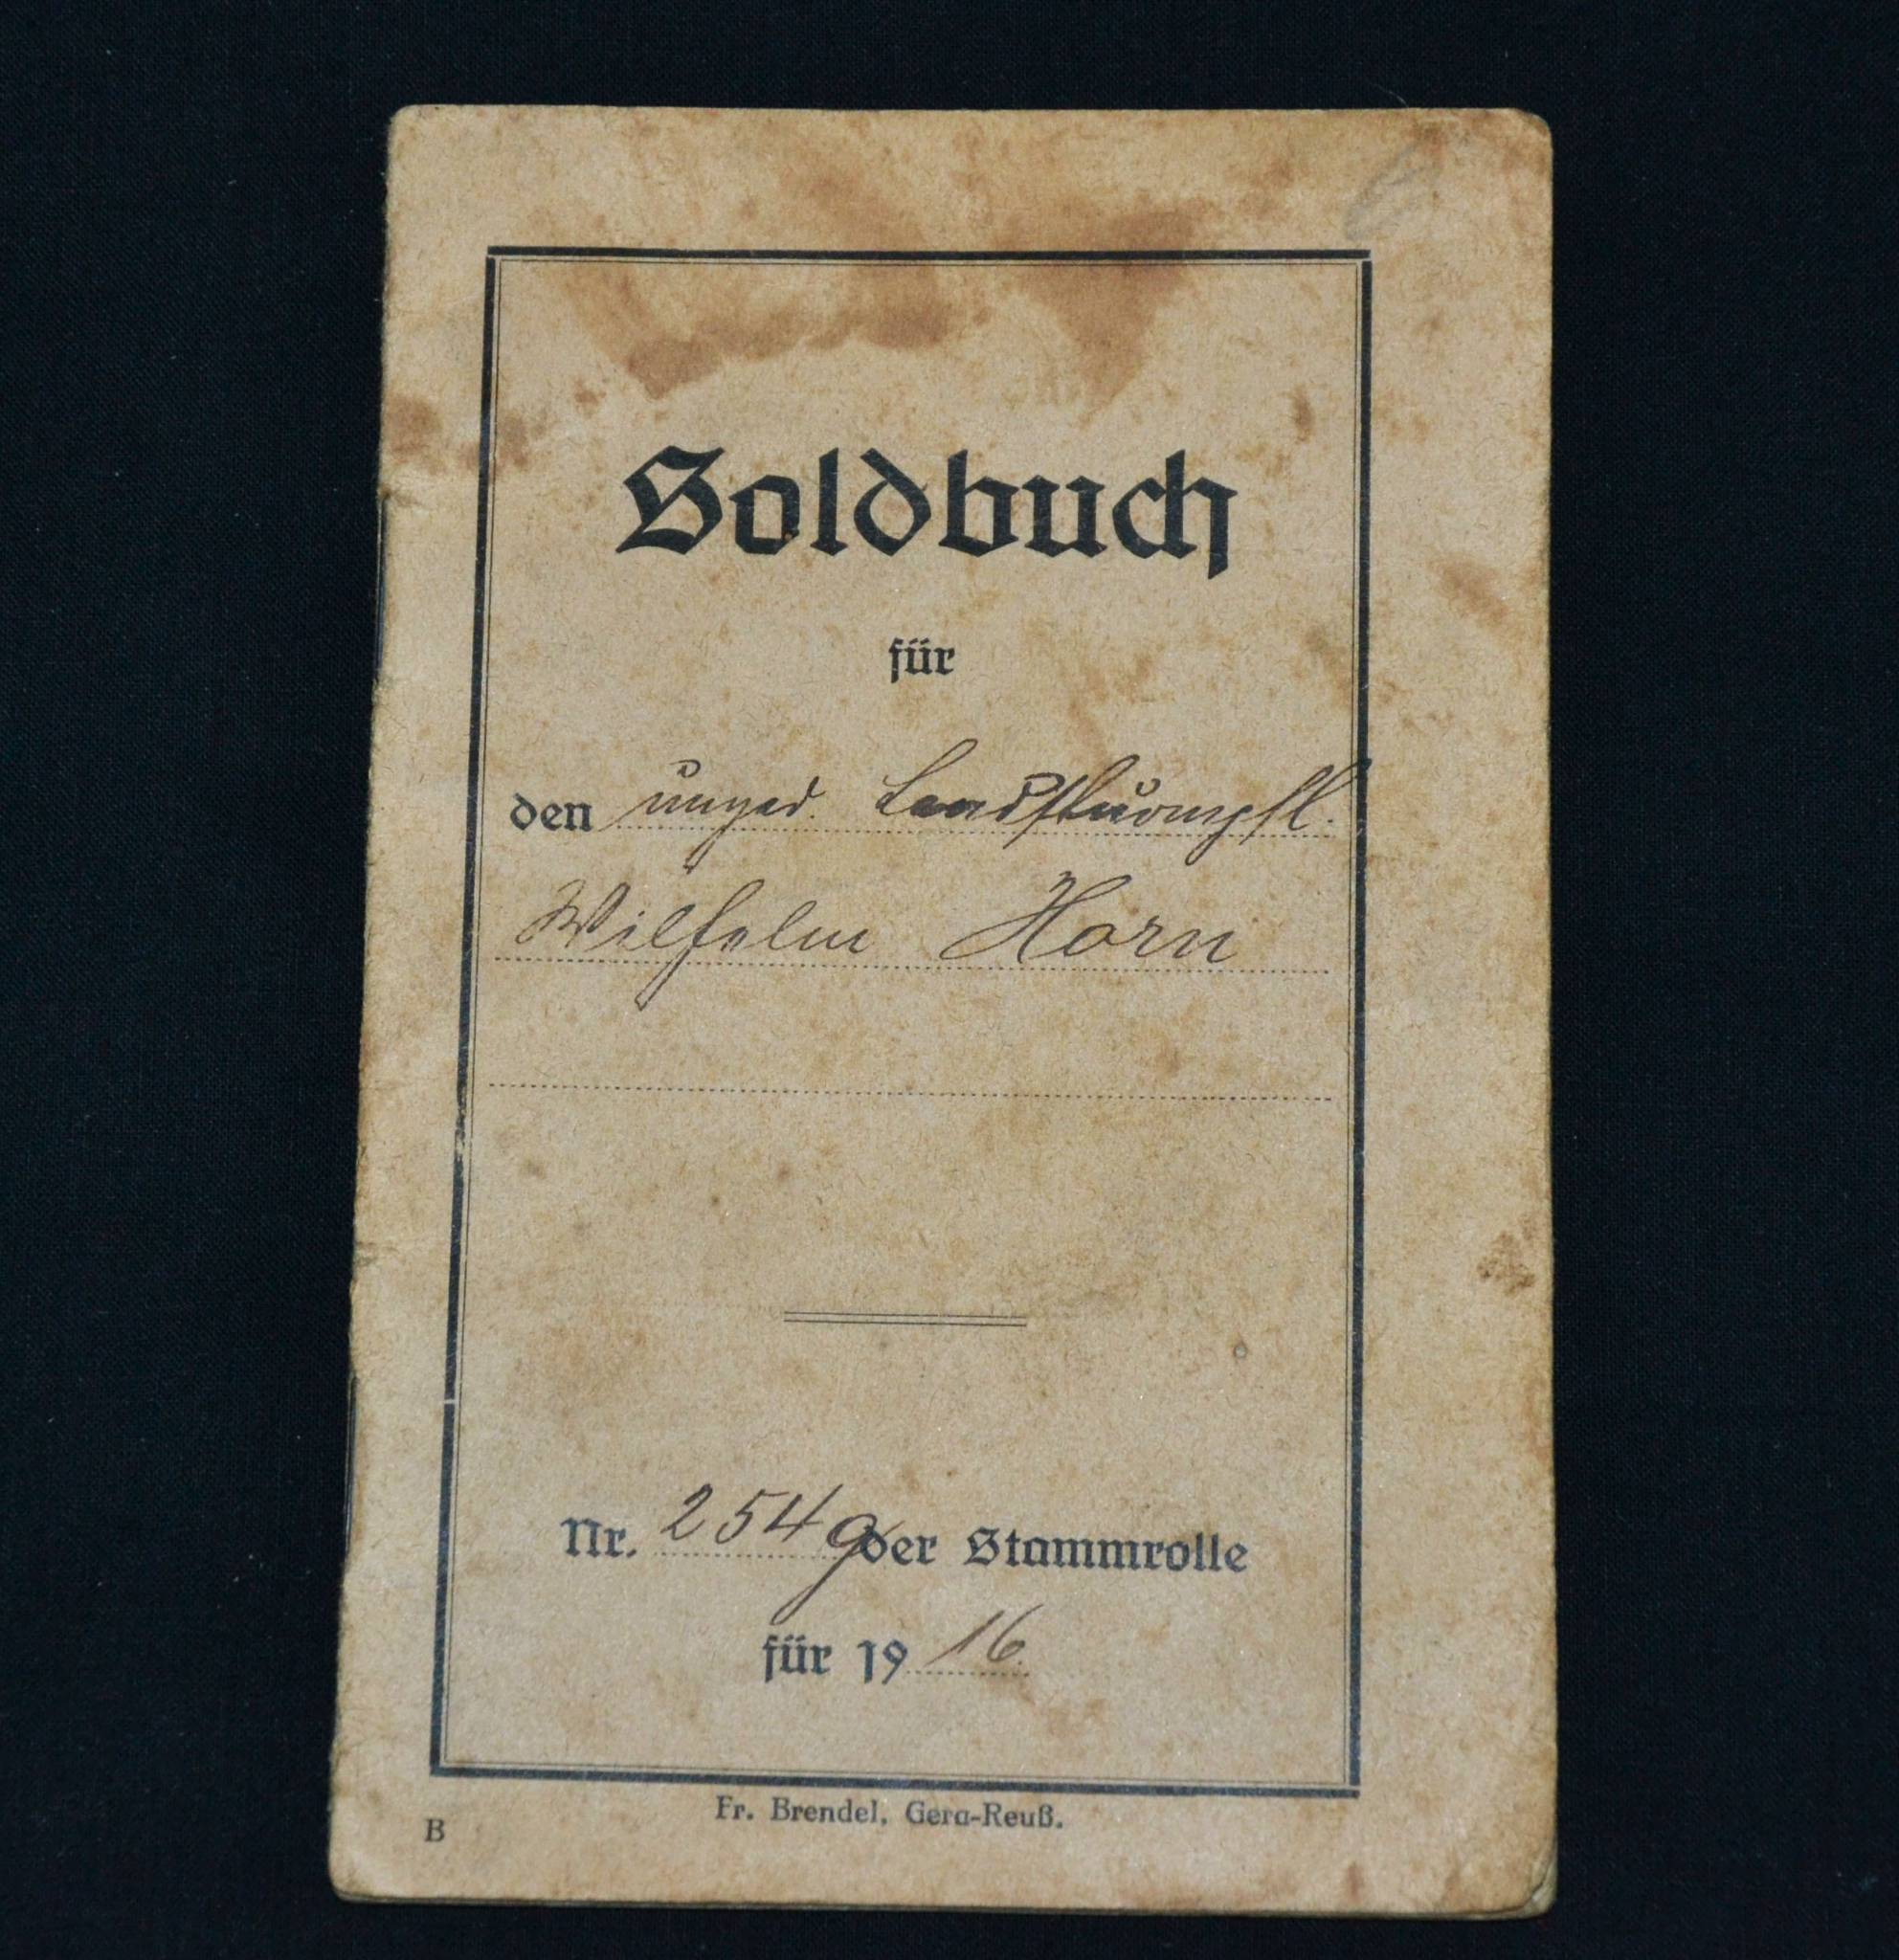 Soldbuch
für
den unged. Landsturmpfl.
Wilhelm Horn
Nr. 254 g der Stammrolle
für 19 16.
Fr. Brendel, Gera-Reuß.
B